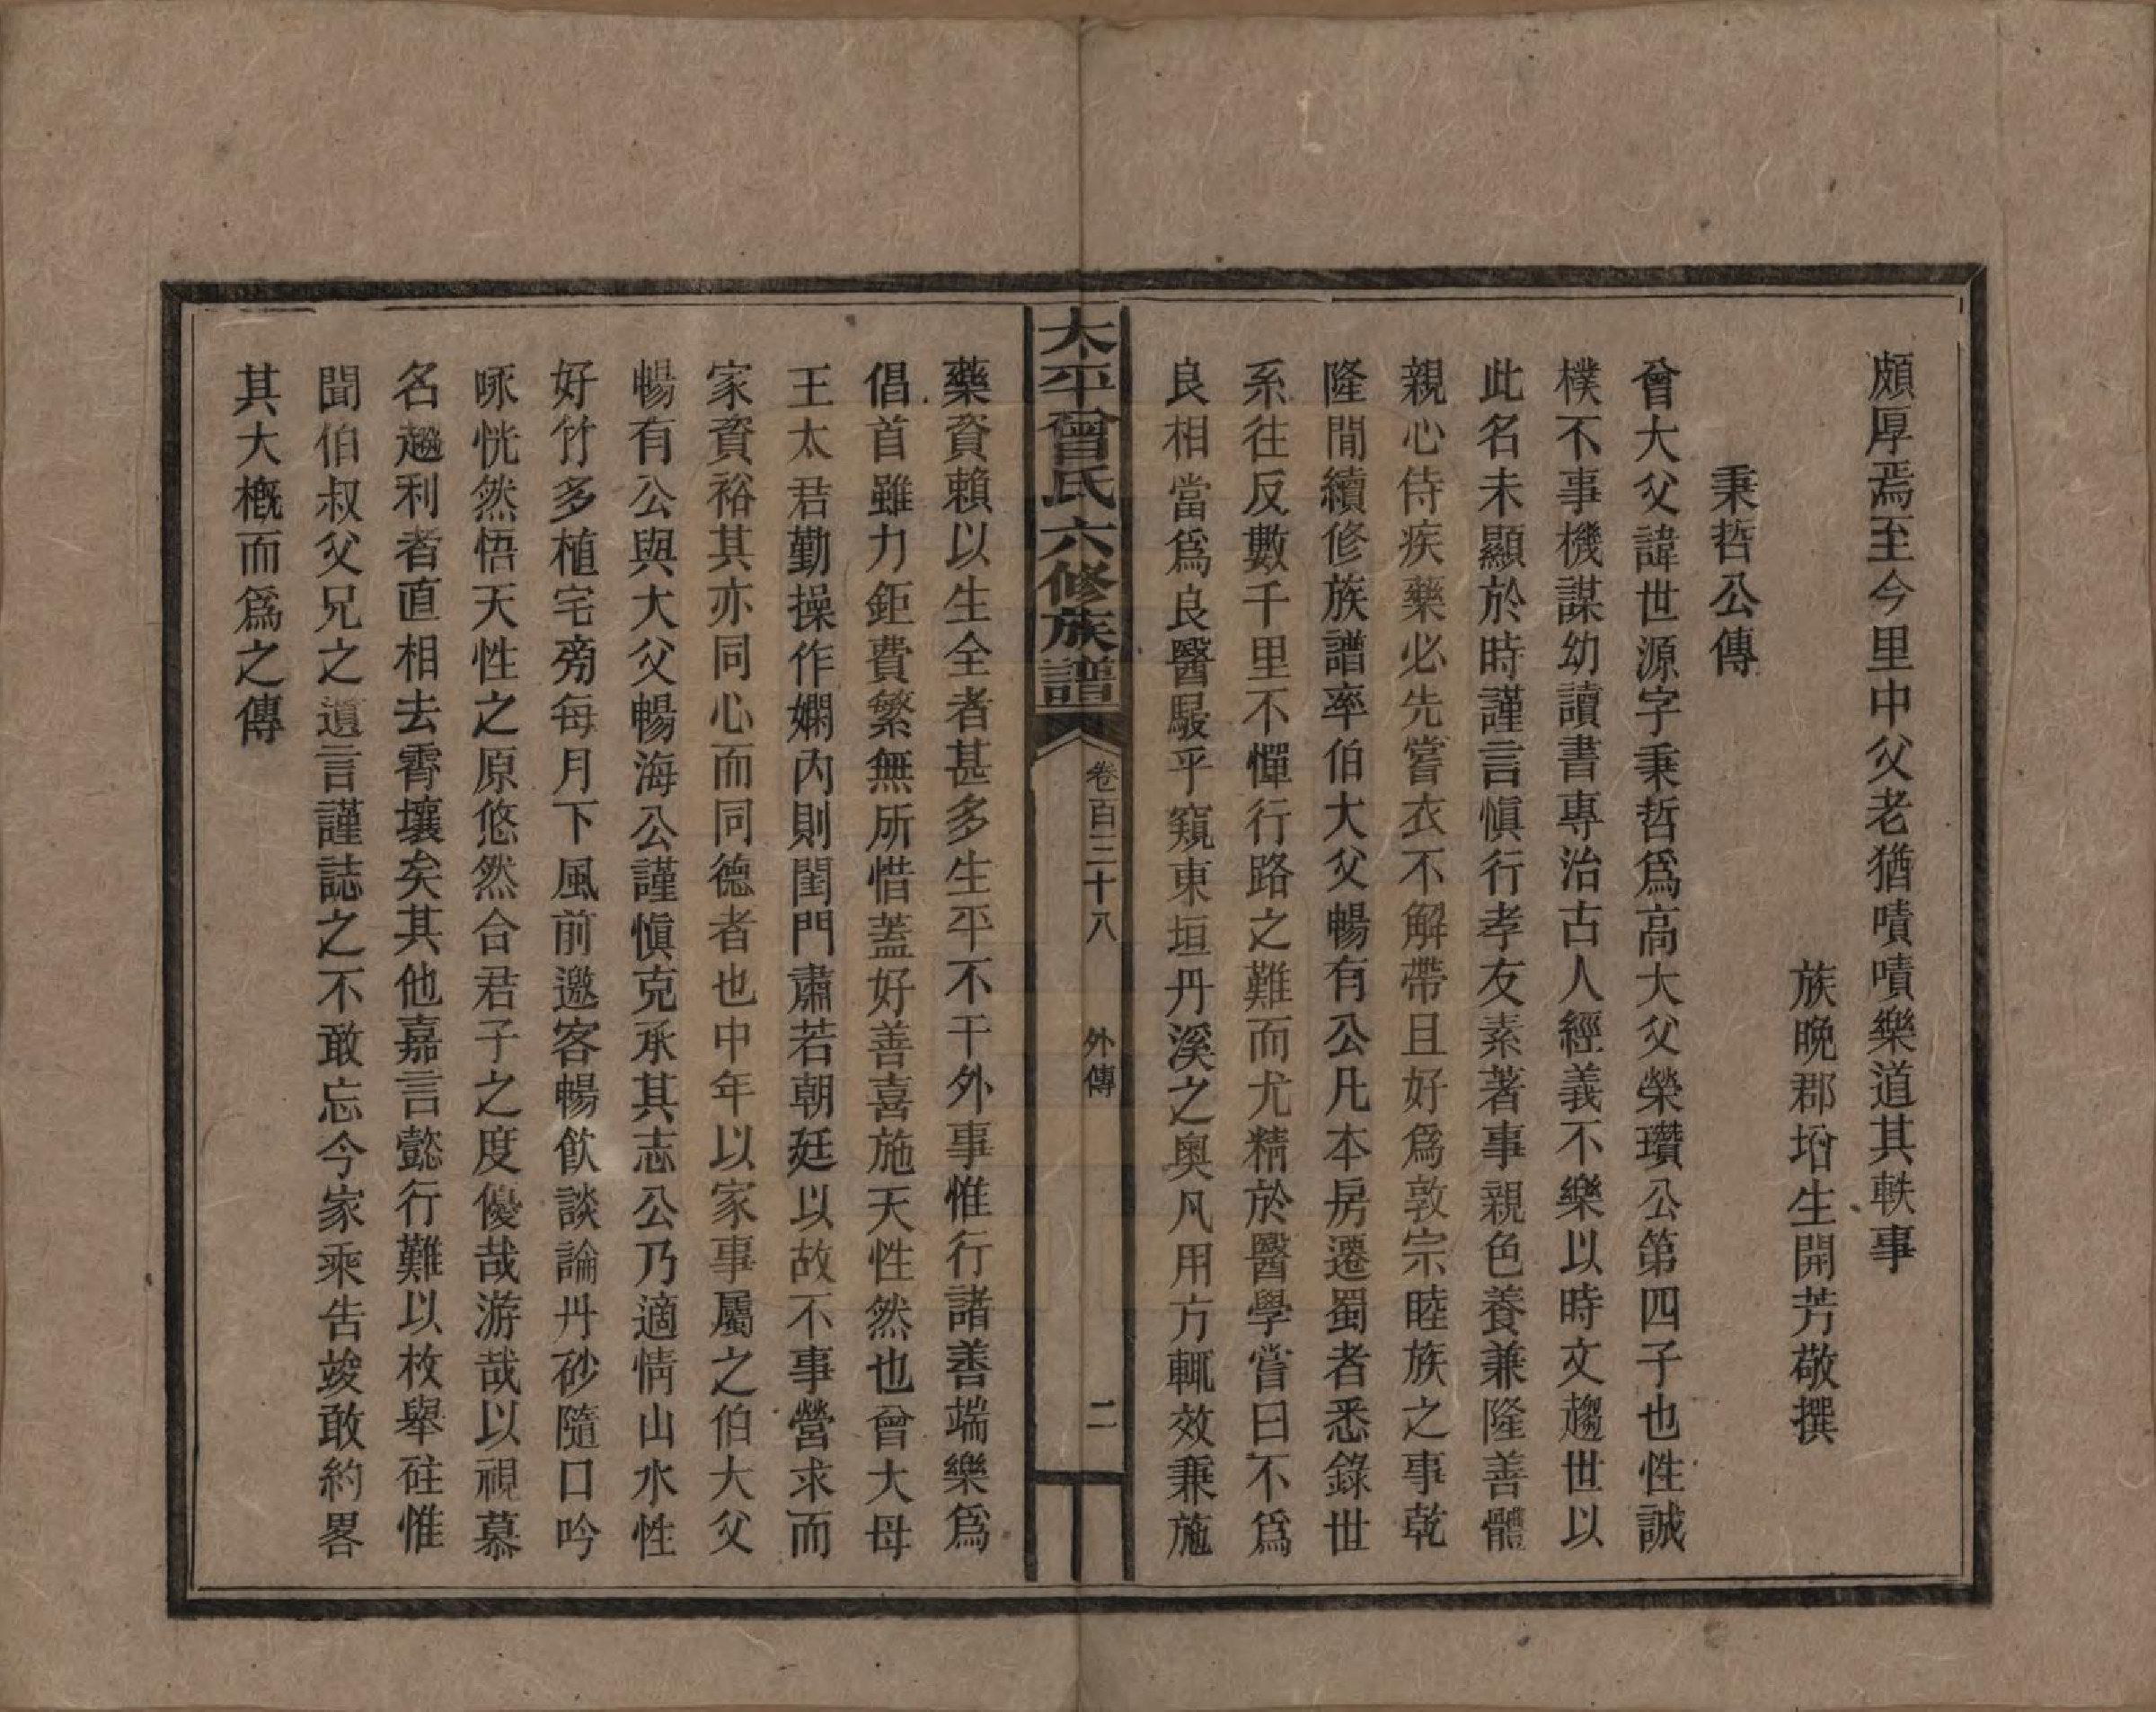 頗厚焉至今里中父老猶嘖嘖樂道其軼事
族晚郡垥生開芳敬撰
秉哲公傳
曾大父諱世源字秉哲爲高大父榮瓚公第四子也性誠
樸不事機謀幼讀書專治古人經義不樂以時文趨世以
此名未顯於時謹言愼行孝友素著事親色養兼隆善體
親心侍疾藥必先嘗衣不解帶且好爲敦宗睦族之事乾
隆間續修族譜率伯大父暢有公凡本房遷蜀者悉錄世
系往反數千里不憚行路之難而尤精於醫學嘗曰不爲
良相當爲良醫駸乎窺東垣丹溪之奧凡用方輒效兼施
太平曾氏六修族譜
卷百三十八
外傳
二
藥資賴以生全者甚多生平不干外事惟行諸善端樂爲
倡首雖力鉅費繁無所惜蓋好善喜施天性然也曾大母
王太君勤操作嫻內則閨門肅若朝廷以故不事營求而
家資裕其亦同心而同德者也中年以家事屬之伯大父
暢有公與大父暢海公謹愼克承其志公乃適情山水性
好竹多植宅旁每月下風前邀客暢飲談論丹砂隨口吟
咏恍然悟天性之原悠然合君子之度優哉游哉以視慕
名趨利者直相去霄壤矣其他嘉言懿行難以枚舉砫惟
聞伯叔父兄之遺言謹誌之不敢忘今家乘告竣敢約畧
其大概而爲之傳